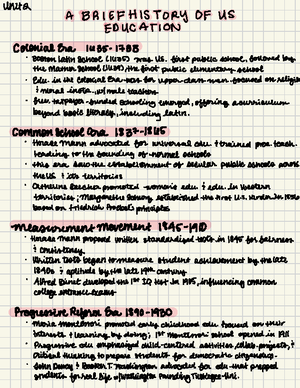 unit 2
A BRIEF HISTORY OF US
EDUCATION
Colonial Era 1635-1788
Boston Latin School (1635) was US. first public school, followed by
the Mather School (1639), the first public elementary school
Edu. in the Colonial Era was for upper-class men, focused on religion
& moral instr., w/ male teachers.
free taxpayer-funded schooling emerged, offering a curriculum
beyond basic literacy, including Latin.
Common School Era 1837-1865
Horace Mann advocated for universal edu. & trained prof. teach.
leading to the founding of normal schools
this era saw the establishment of secular public schools across
the US & its territories
Catherine Beecher promoted women's edu & edu. in Western
territories; Margarethe Schurz established the first U.S. kinder. in 1856
based on Friedrich Froebel's principles
Measurement Movement 1845-1910
Horace Mann proposed written standardized tests in 1845 for fairness
& consistency.
Written tests began to measure student achievement by the late
1840s & aptitude by the late 19th century
Alfred Binet developed the 1st IQ test in 1905, influencing common
college entrance exams
Progressive Reform Era 1890-1930
Maria Montessori promoted early childhood edu focused on their
interests & learning by doing; 1st Montessori school opened in 1911
Progressive edu emphasized child-centered activities, collab. projects, &
critical thinking to prepare students for democratic citizenship.
John Dewey & Booker T. Washington advocated for edu that prepped
students for real life w/ Washington founding Tuskegee Inst.